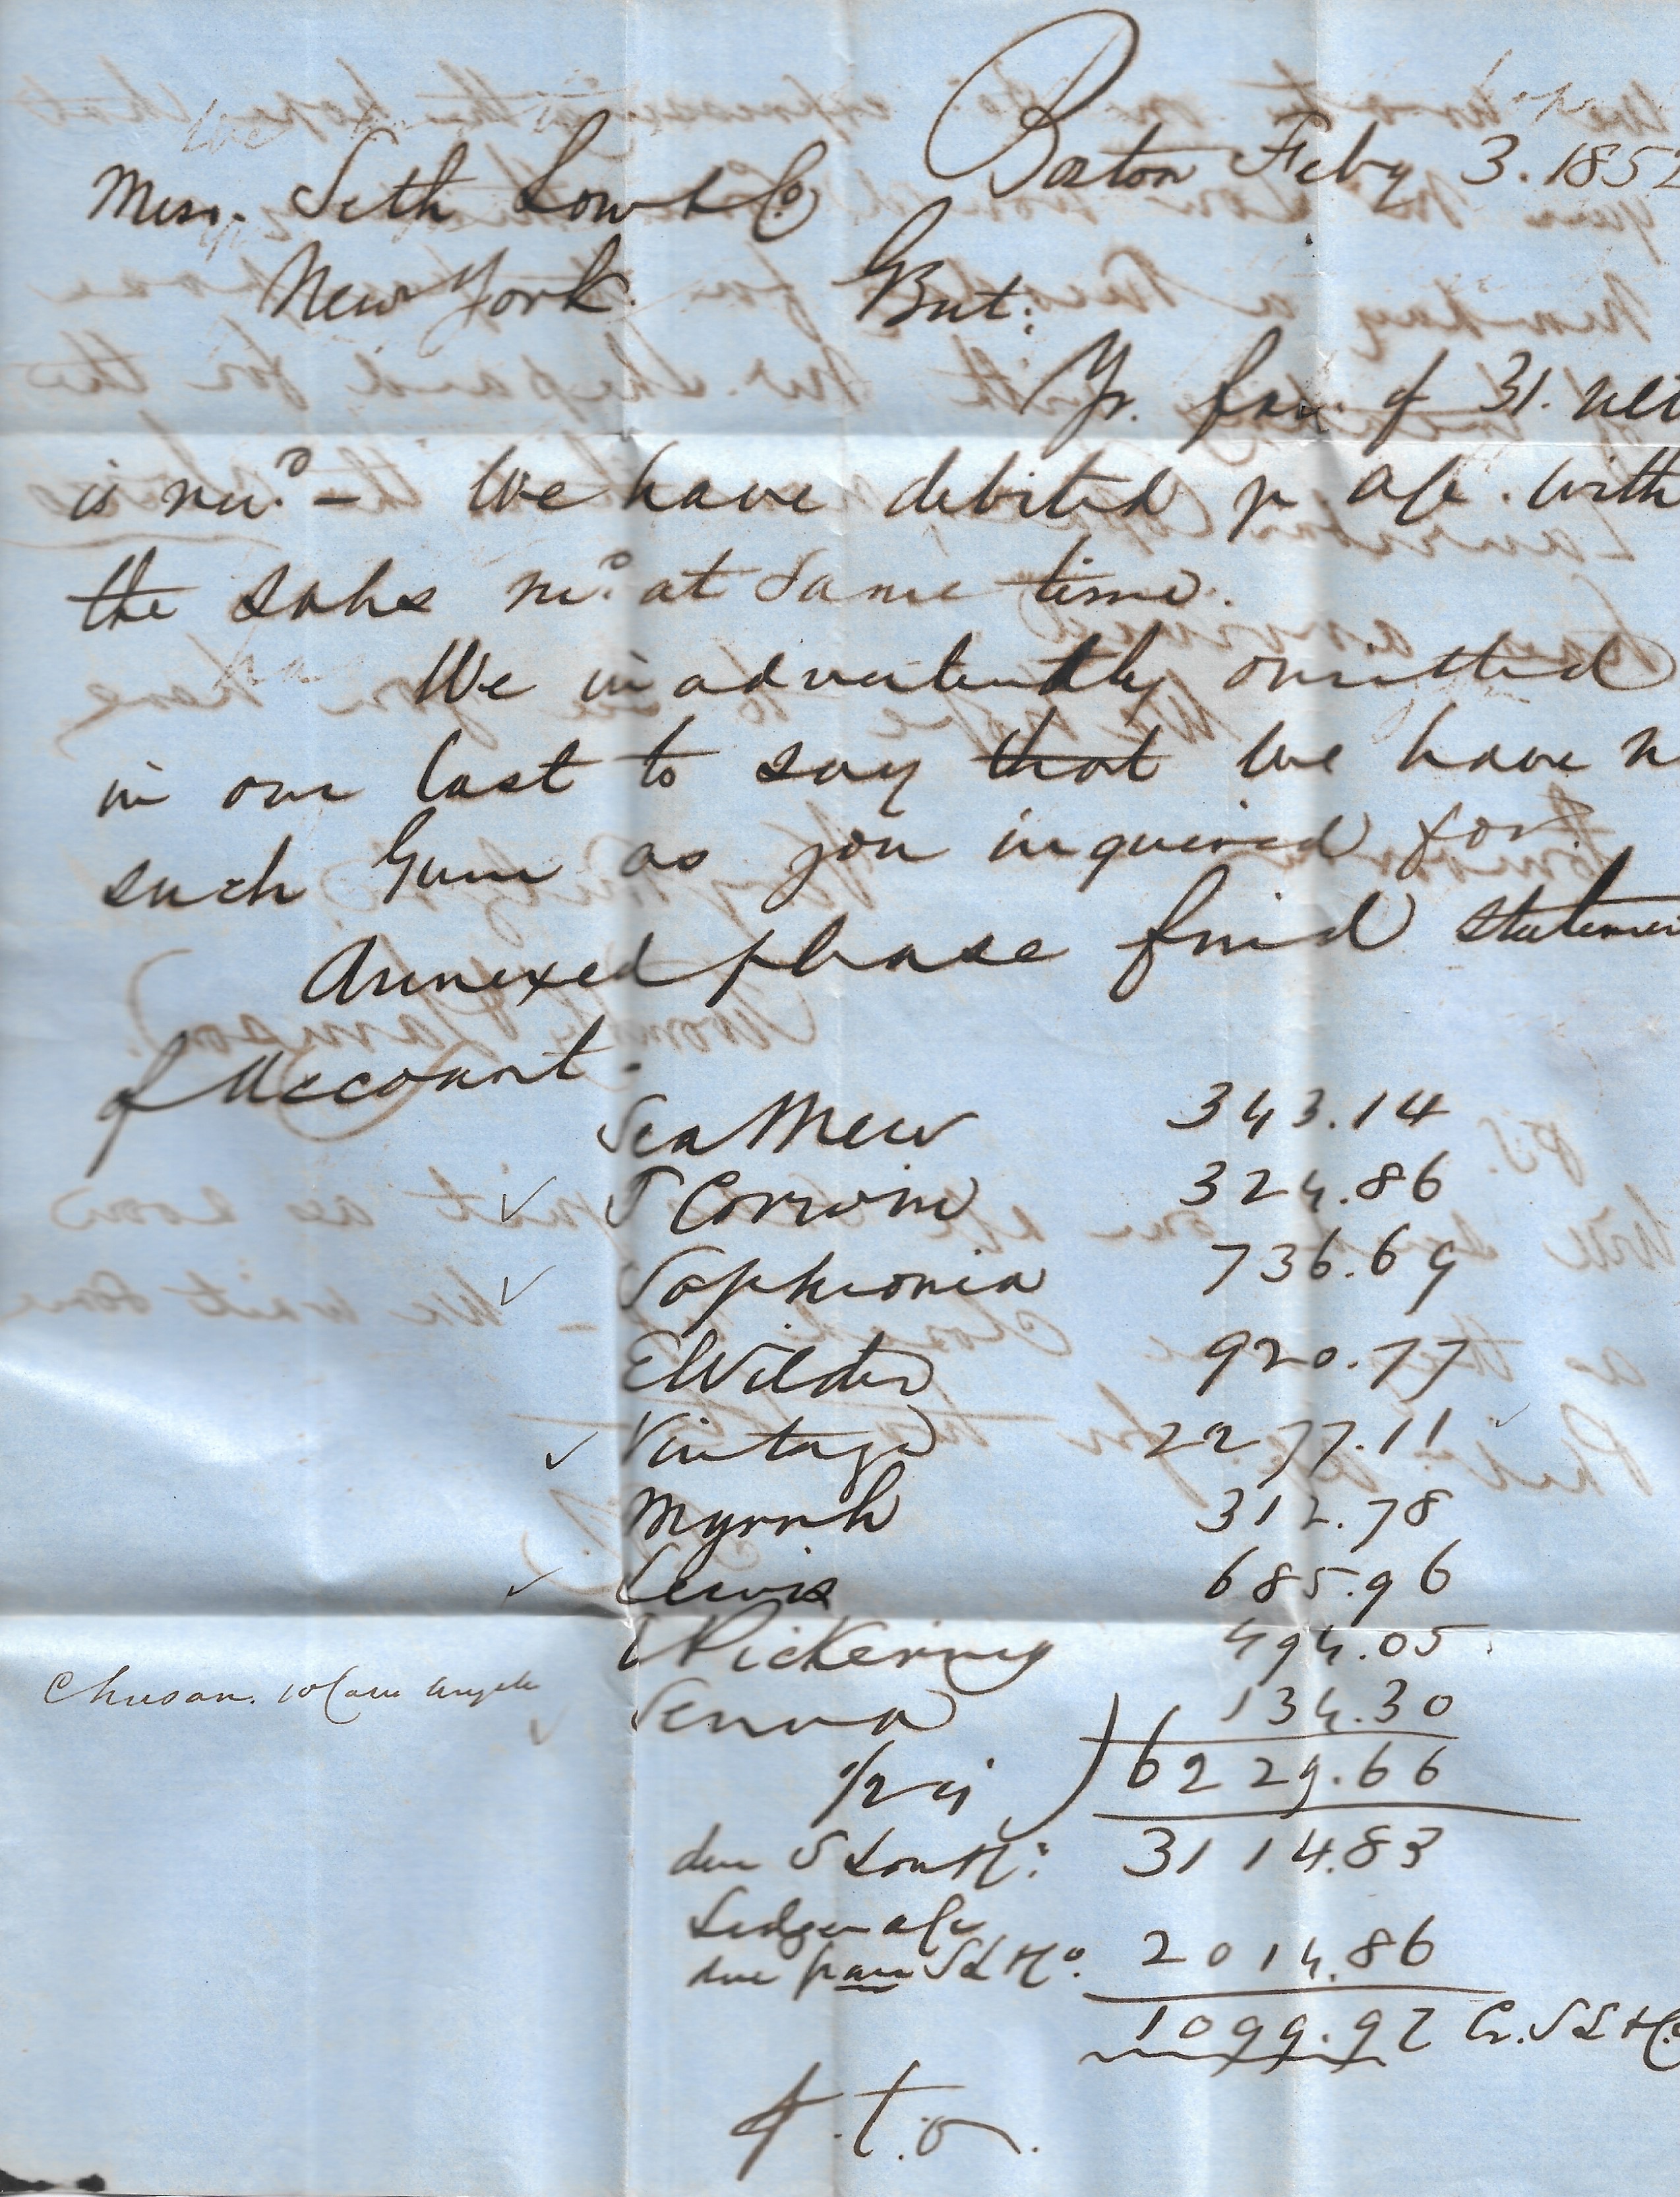 Boston Feby 3. 1852
Messr. Seth Low & Co
New York
Gent:
Yr. fav. of 31. ult
is recd. – We have debited yr a/c. with
the sales recd. at same time.
We inadvertently omitted
in our last to say that we have n
such Gum as you inquired for.
Annexed please find statemen
of Account.
Sea Mew 343.14
✓ T Corwin 324.86
✓ Sophronia 736.69
E Wilder 920.77
✓ Vintage 2277.11 ✓
Myrrh 312.78
✓ Lewis 685.96
Pickering 494.05
Chusan. ✓ Senna 134.30
1/2 is ) 6229.66
due S Low & Co: 3114.83
Ledger a/c
due from SL & Co. 2014.86
1099.97 Cr. S L & Co
p.t.o.